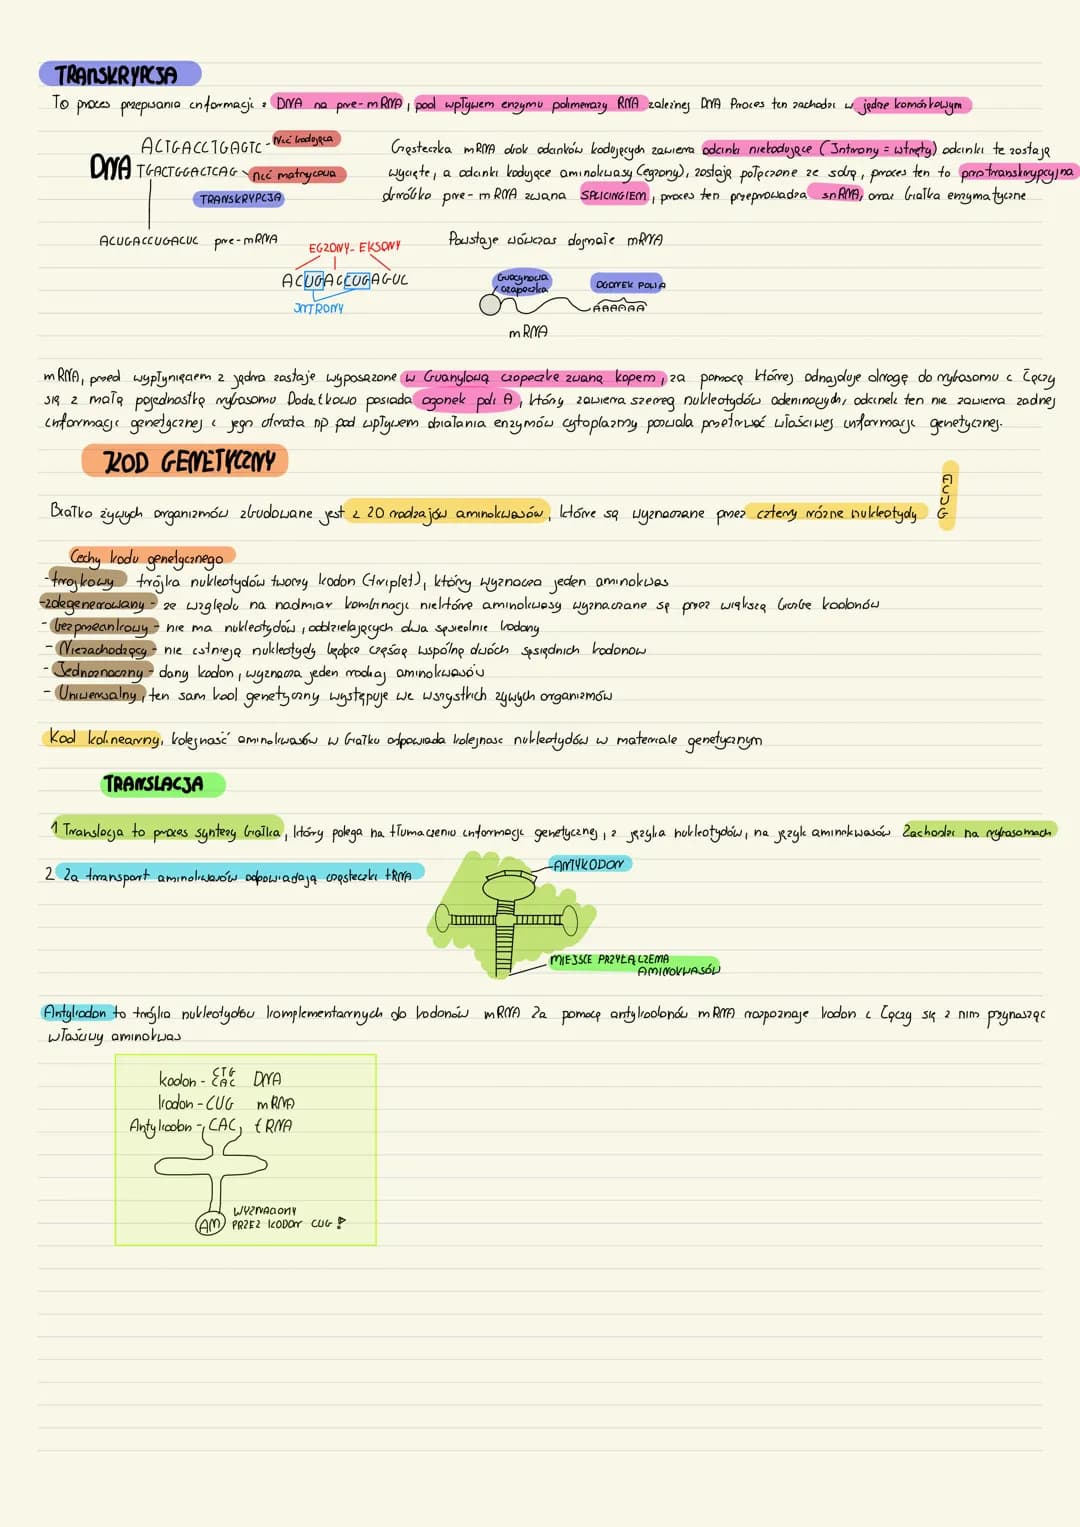 TRANSKRYPCJA
To proces przepisania informacji z DNA na pre-mRNA, pod wpływem enzymu polimerazy RNA zależnej DNA. Proces ten zachodzi w jądrze komórkowym
ACTGACCTGAGTC - Nić kodująca
DNA TGACTGGACTCAG nić matrycowa
TRANSKRYPCJA
ACUGACCUGACUC pre-mRNA
Cząsteczka mRNA obok odcinków kodujących zawiera odcinki niekodujące (Introny = wtręty) odcinki te zostają
wycięte, a odcinki kodujące aminokwasy (egzony), zostają połączone ze sobą, proces ten to potranskrypcyjna
obróbka pre-mRNA zwana SPLICINGIEM, proces ten przeprowadza snRNA, oraz białka enzymatyczne
EGZONY - EKSONY
ACUGAGCUGAGUC
INTRONY
Powstaje wówczas dojrzałe mRNA
Guaynowa czapeczka
OGONEK POLI A
AAAAAA
mRNA
mRNA, przed wypłynięciem z jądra zostaje wyposażone w Guanylową czapeczkę zwaną kapem, za pomocą której odnajduje drogę do rybosomu i łączy
się z małą pojednostką rybosomu Dodatkowo posiada ogonek poli A, który zawiera szereg nukleotydów adeninowych, odcinek ten nie zawiera żadnej
informacji genetycznej i jego utrata np pod wpływem działania enzymów cytoplazmy pozwala przetrwać właściwej informacji genetycznej.
KOD GENETYCZNY
Białko żywych organizmów zbudowane jest z 20 rodzajów aminokwasów, które są wyznaczane przez cztery różne nukleotydy
A
C
U
G
Cechy kodu genetycznego
- trojkowy trójka nukleotydów tworzy kodon (triplet), który wyznacza jeden aminokwas
- zdegenerowany - ze względu na nadmiar kombinacji niektóre aminokwasy wyznaczane są przez większą liczbę kodonów
- bezprzecinkowy - nie ma nukleotydów, oddzielających dwa sąsiednie kodony
- Niezachodzący - nie istnieją nukleotydy będące częścią wspólną dwóch sąsiednich kodonow
- Jednoznaczny - dany kodon, wyznacza jeden rodzaj aminokwasów
- Uniwersalny, ten sam kod genetyczny występuje we wszystkich żywych organizmów
Kod kolinearny, kolejność aminokwasów w białku odpowiada kolejnosc nukleotydów w materiale genetycznym
TRANSLACJA
1 Translacja to proces syntezy białka, który polega na tłumaczeniu informacji genetycznej, z języka nukleotydów, na język aminokwasów Zachodzi na rybosomach
2 Za transport aminokwasów odpowiadają cząsteczki tRNA
ANTYKODON
MIEJSCE PRZYŁĄCZENIA
AMINOKWASÓW
Antykodon to trójka nukleotydów komplementarnych do kodonów mRNA Za pomocą antykodonów mRNA rozpoznaje kodon i łączy się z nim przynosząc
właściwy aminokwas
kodon - CTG CAC DNA
kodon - CUG mRNA
Antykodon - CAC, tRNA
AM
WYZNACZONY
PRZEZ KODON CUG !